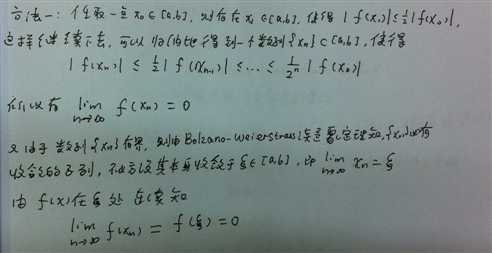 方法一：任取一点 x₀∈[a,b], 则存在 x₁∈[a,b], 使得 |f(x₁)|≤½|f(x₀)|,
这样继续下去, 可以归纳地得到一个数列{xₙ}⊂[a,b], 使得
|f(xₙ)| ≤ ½|f(xₙ₋₁)| ≤ … ≤ 1/2ⁿ |f(x₀)|
所以有 lim_{n→∞} f(xₙ) = 0
又由于数列{xₙ}有界, 则由Bolzano-Weierstrass致密性定理知, {xₙ}必有
收敛的子列, 不妨设其本身收敛于 ξ∈[a,b], 即 lim_{n→∞} xₙ = ξ
由 f(x) 在 ξ 处连续知
lim_{n→∞} f(xₙ) = f(ξ) = 0